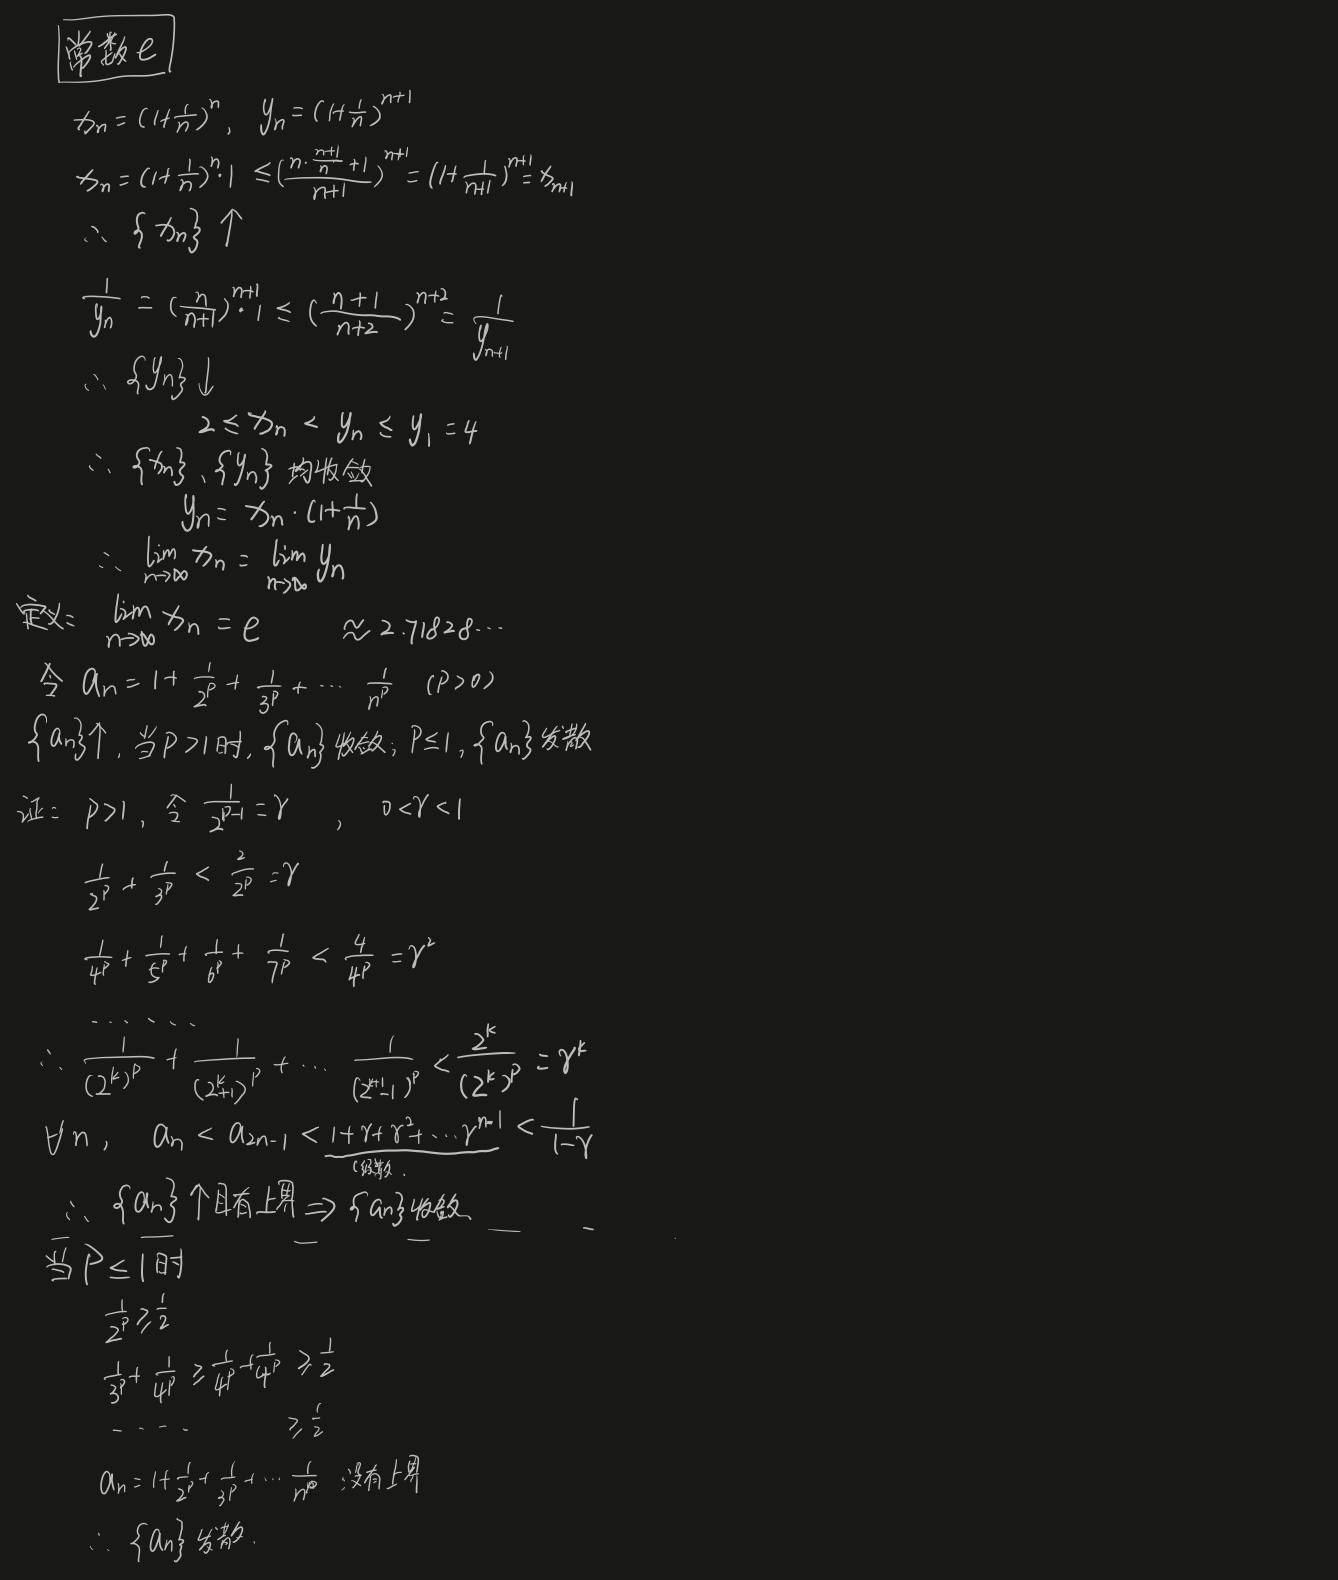 常数 e
xₙ = (1+1/n)ⁿ, yₙ = (1+1/n)ⁿ⁺¹
xₙ = (1+1/n)ⁿ·1 ≤ ((n·(n+1)/n + 1)/(n+1))ⁿ⁺¹ = (1+1/(n+1))ⁿ⁺¹ = xₙ₊₁
∴ {xₙ}↑
1/yₙ = (n/(n+1))ⁿ⁺¹·1 ≤ ((n+1)/(n+2))ⁿ⁺² = 1/yₙ₊₁
∴ {yₙ}↓
2 ≤ xₙ < yₙ ≤ y₁ = 4
∴ {xₙ}、{yₙ} 均收敛
yₙ = xₙ·(1+1/n)
∴ lim n→∞ xₙ = lim n→∞ yₙ
定义: lim n→∞ xₙ = e ≈ 2.71828…
令 aₙ = 1 + 1/2ᵖ + 1/3ᵖ + … 1/nᵖ (P>0)
{aₙ}↑, 当 P>1 时, {aₙ} 收敛; P≤1, {aₙ} 发散
证: P>1, 令 1/2ᵖ⁻¹ = γ , 0<γ<1
1/2ᵖ + 1/3ᵖ < 2/2ᵖ = γ
1/4ᵖ + 1/5ᵖ + 1/6ᵖ + 1/7ᵖ < 4/4ᵖ = γ²
……
∴ 1/(2ᵏ)ᵖ + 1/(2ᵏ+1)ᵖ + … 1/(2ᵏ⁺¹-1)ᵖ < 2ᵏ/(2ᵏ)ᵖ = γᵏ
∀n, aₙ < a₂ₙ₋₁ < 1+γ+γ²+…γⁿ⁻¹ < 1/(1-γ)
级数.
∴ {aₙ}↑且有上界 ⇒ {aₙ} 收敛
当 P≤1 时
1/2ᵖ ≥ 1/2
1/3ᵖ + 1/4ᵖ ≥ 1/4ᵖ + 1/4ᵖ ≥ 1/2
…. ≥ 1/2
aₙ = 1 + 1/2ᵖ + 1/3ᵖ + … 1/nᵖ 没有上界
∴ {aₙ} 发散.